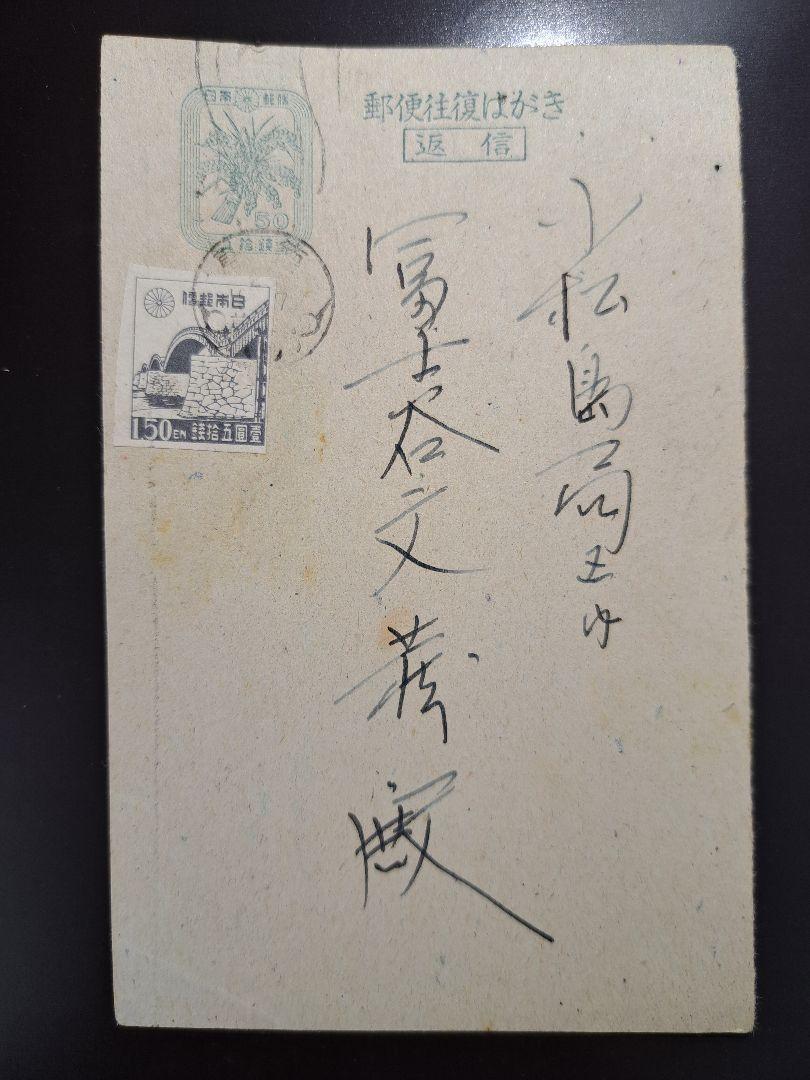 郵便往復はがき
返信
日本郵便
50
五拾銭
日本郵便
1.50EN 壹圓五拾錢
小松島局区内
冨士谷文蔵殿